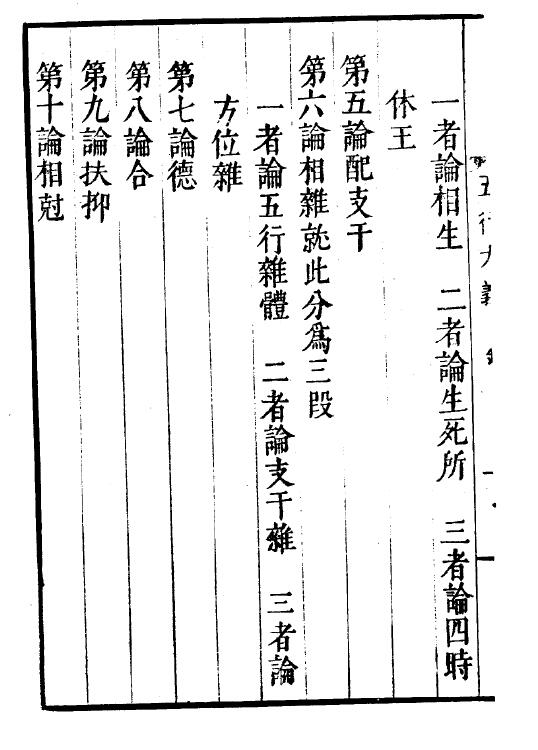 五行大義
一者論相生　二者論生死所　三者論四時
休王
第五論配支干
第六論相雜就此分爲三段
一者論五行雜體　二者論支干雜　三者論
方位雜
第七論德
第八論合
第九論扶抑
第十論相尅